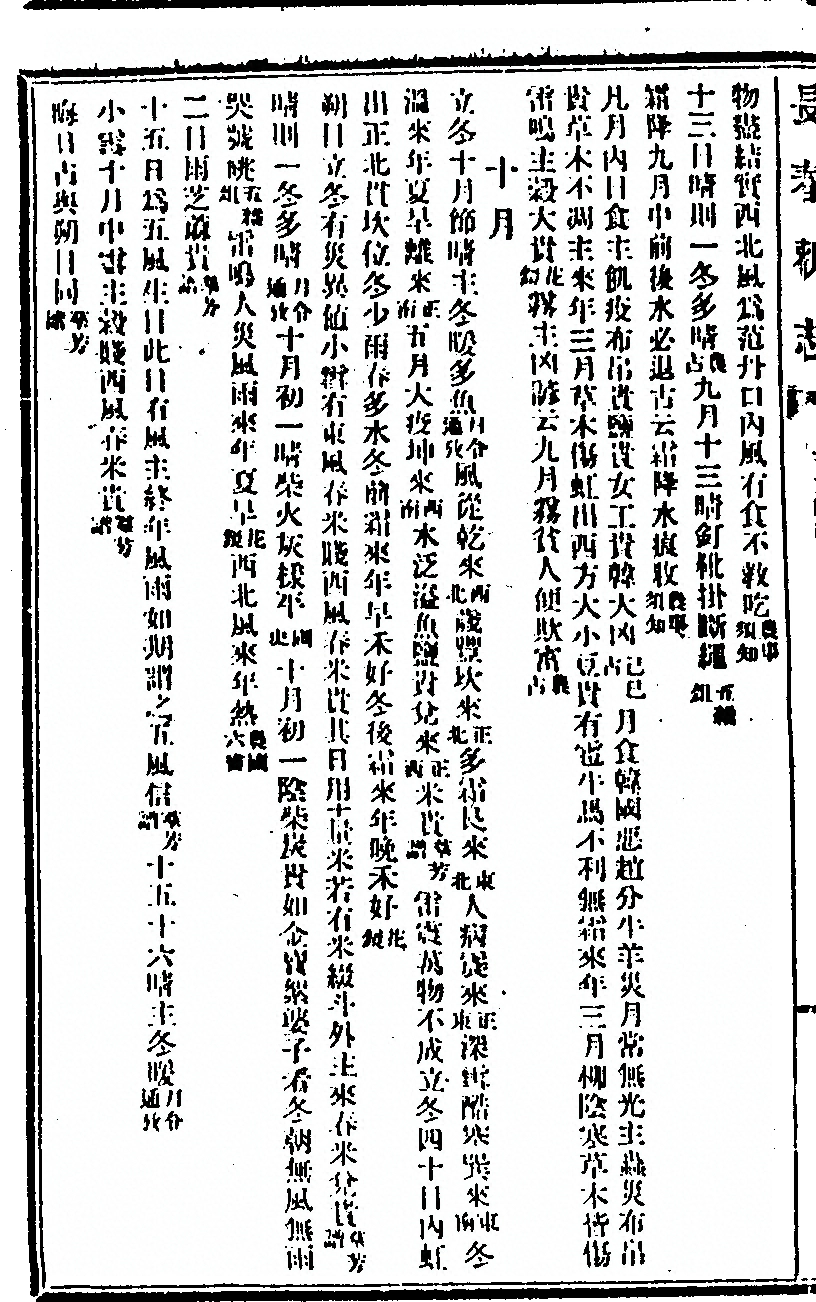 物盡結實西北風爲范丹口內風有食不救吃農事須知
十三日晴則一冬多晴農占九月十三晴釘靴掛斷繩五雜俎
霜降九月中前後水必退古云霜降水痕收農事須知
凡月內日食主飢疫布帛貴鹽貴女工貴韓大凶占己巳月食韓國惡趙分牛羊災月常無光主蟲災布帛
貴草木不凋主來年三月草木傷虹出西方大小豆貴有雹牛馬不利無霜來年三月柳陰寒草木皆傷
雷鳴主穀大貴花鏡霧主凶諺云九月霧貧人便欺富農占
十月
立冬十月節晴主冬暖多魚月令通攷風從乾來西北歲豐坎來正北多霜艮來東北人病震來正東深雪酷寒巽來東南冬
溫來年夏旱離來正南五月大疫坤來西南水泛溢魚鹽貴兌來正西米貴羣芳譜雷震萬物不成立冬四十日內虹
出正北貫坎位冬少雨春多水冬前霜來年早禾好冬後霜來年晚禾好花鏡
朔日立冬有災異値小雪有東風春米賤西風春米貴其日用斗量米若有米綴斗外主來春米貴羣芳譜
晴則一冬多晴月令通攷十月初一晴柴火灰樣平國史十月初一陰柴炭貴如金賣絮婆子看冬朝無風無雨
哭號咷五雜俎雷鳴人災風雨來年夏旱花鏡西北風來年熱農圃六書
二日雨芝蔴貴羣芳譜
十五日爲五風生日此日有風主終年風雨如期謂之五風信羣芳譜十五十六晴主冬暖月令通攷
小雪十月中雪主穀賤西風春米貴羣芳譜
晦日占與朔日同羣芳譜